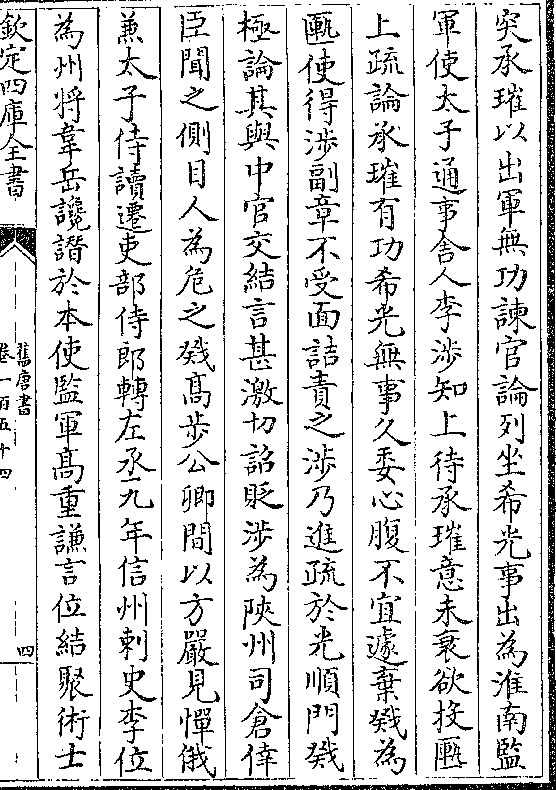 突承璀以出軍無功諫官論列坐希光事出為淮南監
軍使太子通事舍人李涉知上待承璀意未衰欲投匭
上疏論承璀有功希光無事久委心腹不宜遽棄戣為
匭使得涉副章不受面詰責之涉乃進疏於光順門戣
極論其與中官交結言甚激切詔貶涉為陝州司倉倖
臣聞之側目人為危之戣髙步公卿間以方嚴見憚俄
兼太子侍讀遷吏部侍郎轉左丞九年信州刺史李位
為州將韋岳讒譖於本使監軍髙重謙言位結聚術士
欽定四庫全書
舊唐書
卷一百五十四
四